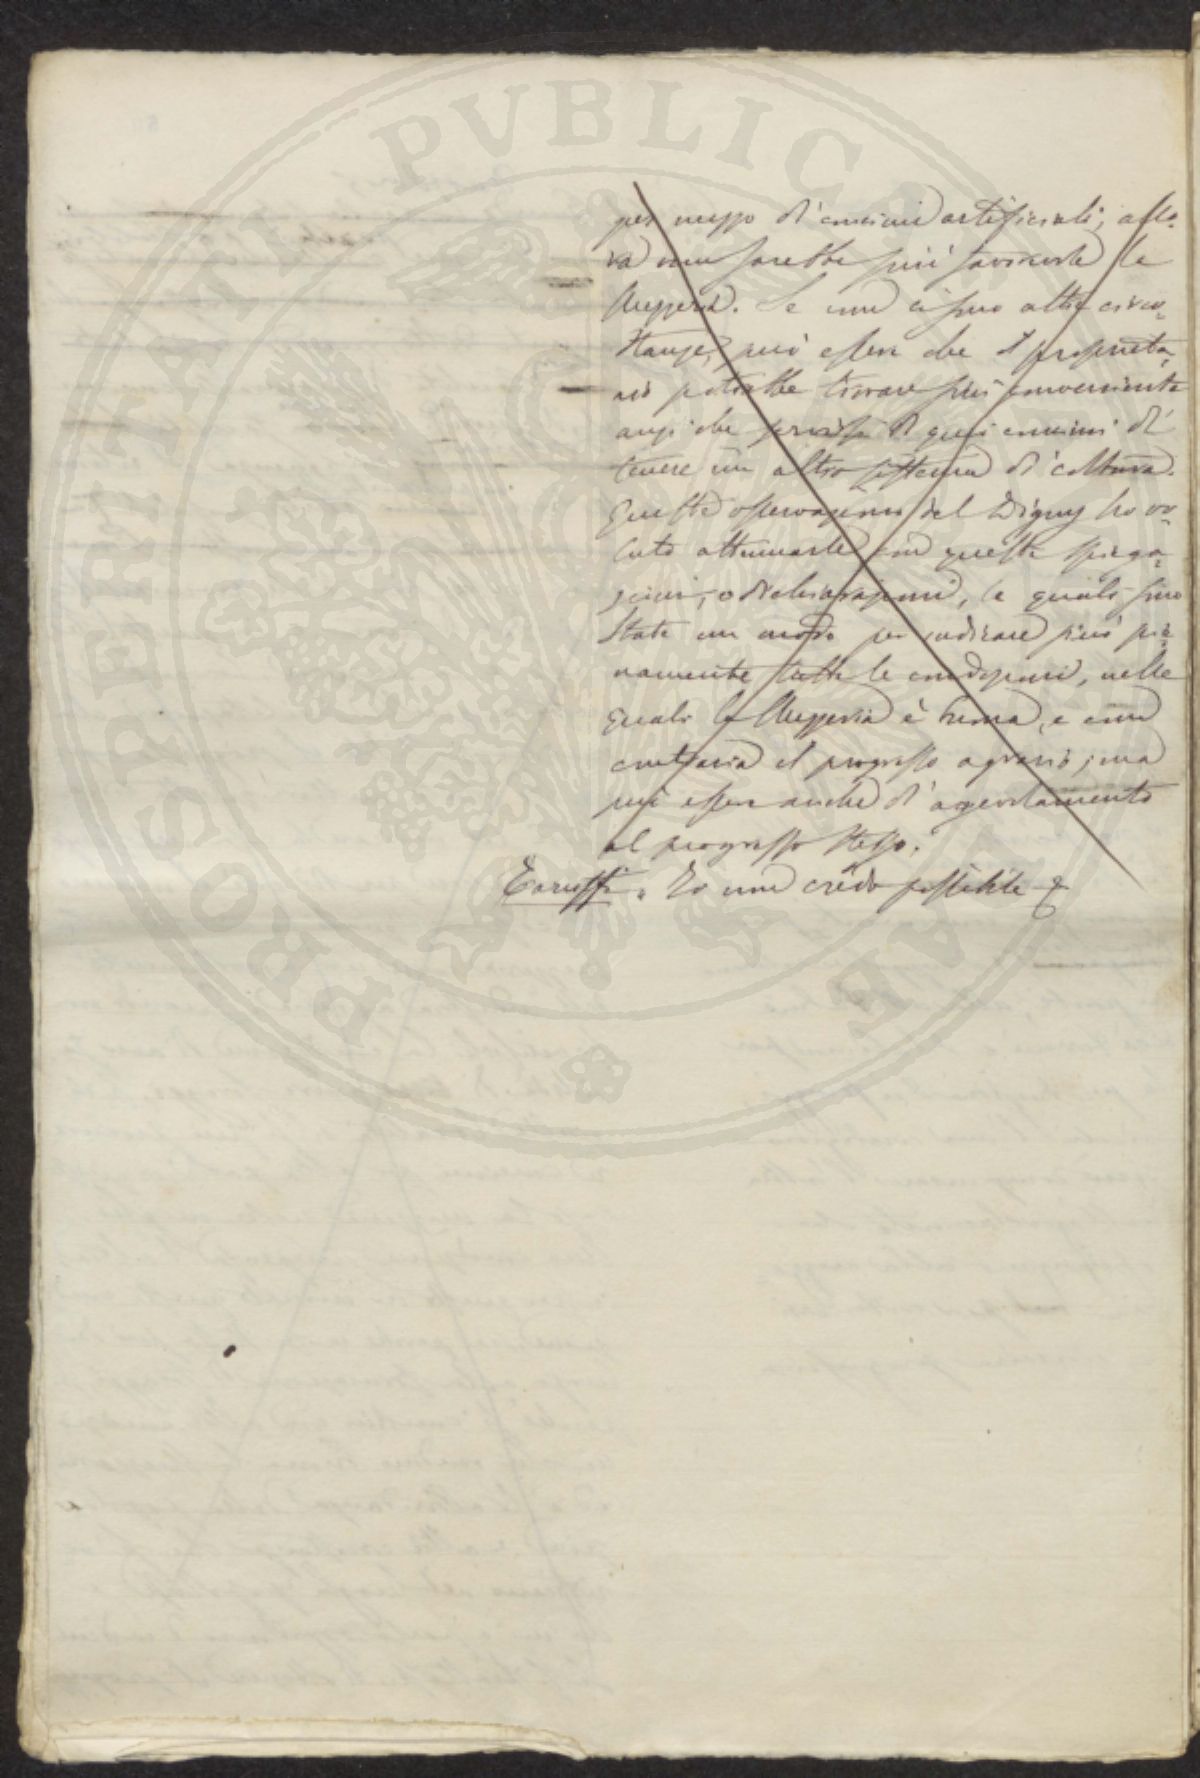 PVBLICAE
PROSPERITATI
per mezzo di concimi artificiali; allo-
ra non sarebbe più favorevole la
Mezzeria. Se non ci sono altre circo-
stanze, può essere che il proprieta-
rio potrebbe trovare più conveniente
anzi che di quei concimi di
tenere un altro sistema di coltura.
Queste osservazioni del Digny ho vo-
luto attenuarle con queste spiega-
zioni, o dichiarazioni, le quali sono
state un modo per indicare più pie-
namente tutte le condizioni, nelle
quali la Mezzeria è buona, e non
contraria il progresso agrario; ma
può essere anche d'agevolamento
al progresso stesso.
Taruffi. Io non credo possibile